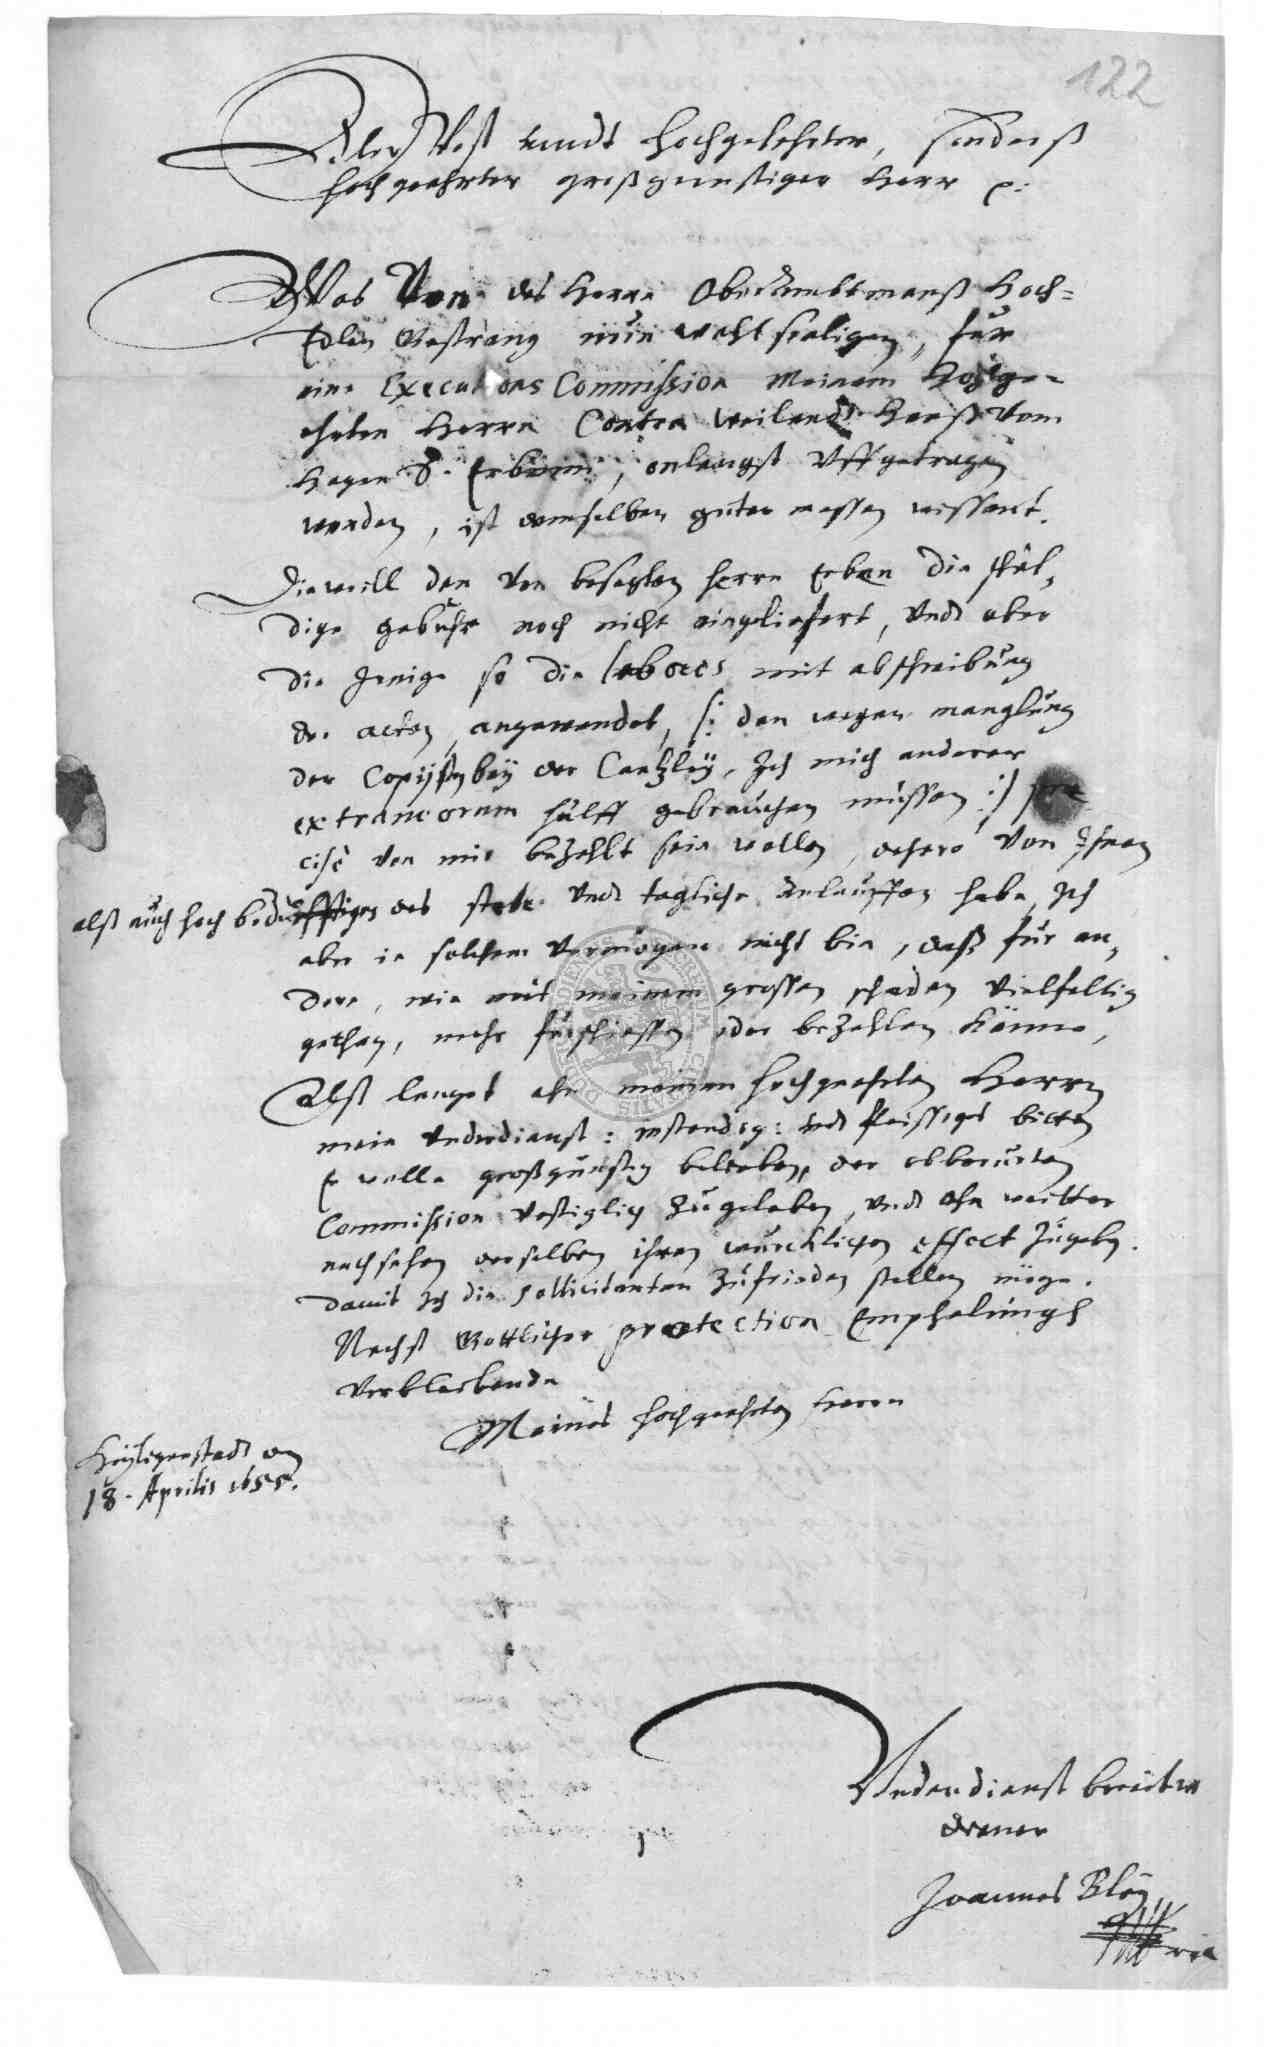 122
Edler Vest undt Hochgelehrter, sonderß
hochgeehrter großgunstiger Herr p:
Was Von des Herrn Oberambtmanß Hoch-
Edlen Gestreng nun wohl seeligen, für
eine Executions Commission Meinem Hochge-
ehrten Herrn Contra weilandt Hanß Vom
Hagen S. Erben, onlengst Uffgetragen
worden, ist demselben guter massen wissent.
Dieweill den Von besagten herrn Erben die schul,
dige gebühr noch nicht eingeliefert, Undt aber
die Jenige so die labores mit abschreibung
der acten, angewendet, /: den wegen manglung
der Copijsten beÿ der Cantzleÿ, Ich mich anderer
extraneorum hülff gebrauchen müssen :/ prae
cisè von mir bezahlt sein wollen, dahero Von Ihnen
alß auch hoch bedürfftiges das stete Undt tagliche Anlauffen habe, Ich
aber in solchem Vermögen nicht bin, daß für an,
dere, wie mit meinem grossen schaden Vielfeltig
gethan, mehr fürschiessen oder bezahlen könne,
Alß langet ahn meinen hochgeehrten Herrn
mein Underdienst: instendig: Undt fleissiges bitten
Er wolle großgünstig belieben, der obberürten
Commission Vestiglich zugeleben, Undt ohn weitter
nachsehen derselben ihren würcklichen effect zugeben.
damit Ich die Sollicitanten zufrieden stellen möge.
Nechst Gottlicher protection Emphelungh
Verbleibende
Meines hochgeehrten Herrn
Heyligenstadt den
18. Aprilis 1655.
Underdienst bereiter
diener
Joannes Bleÿ